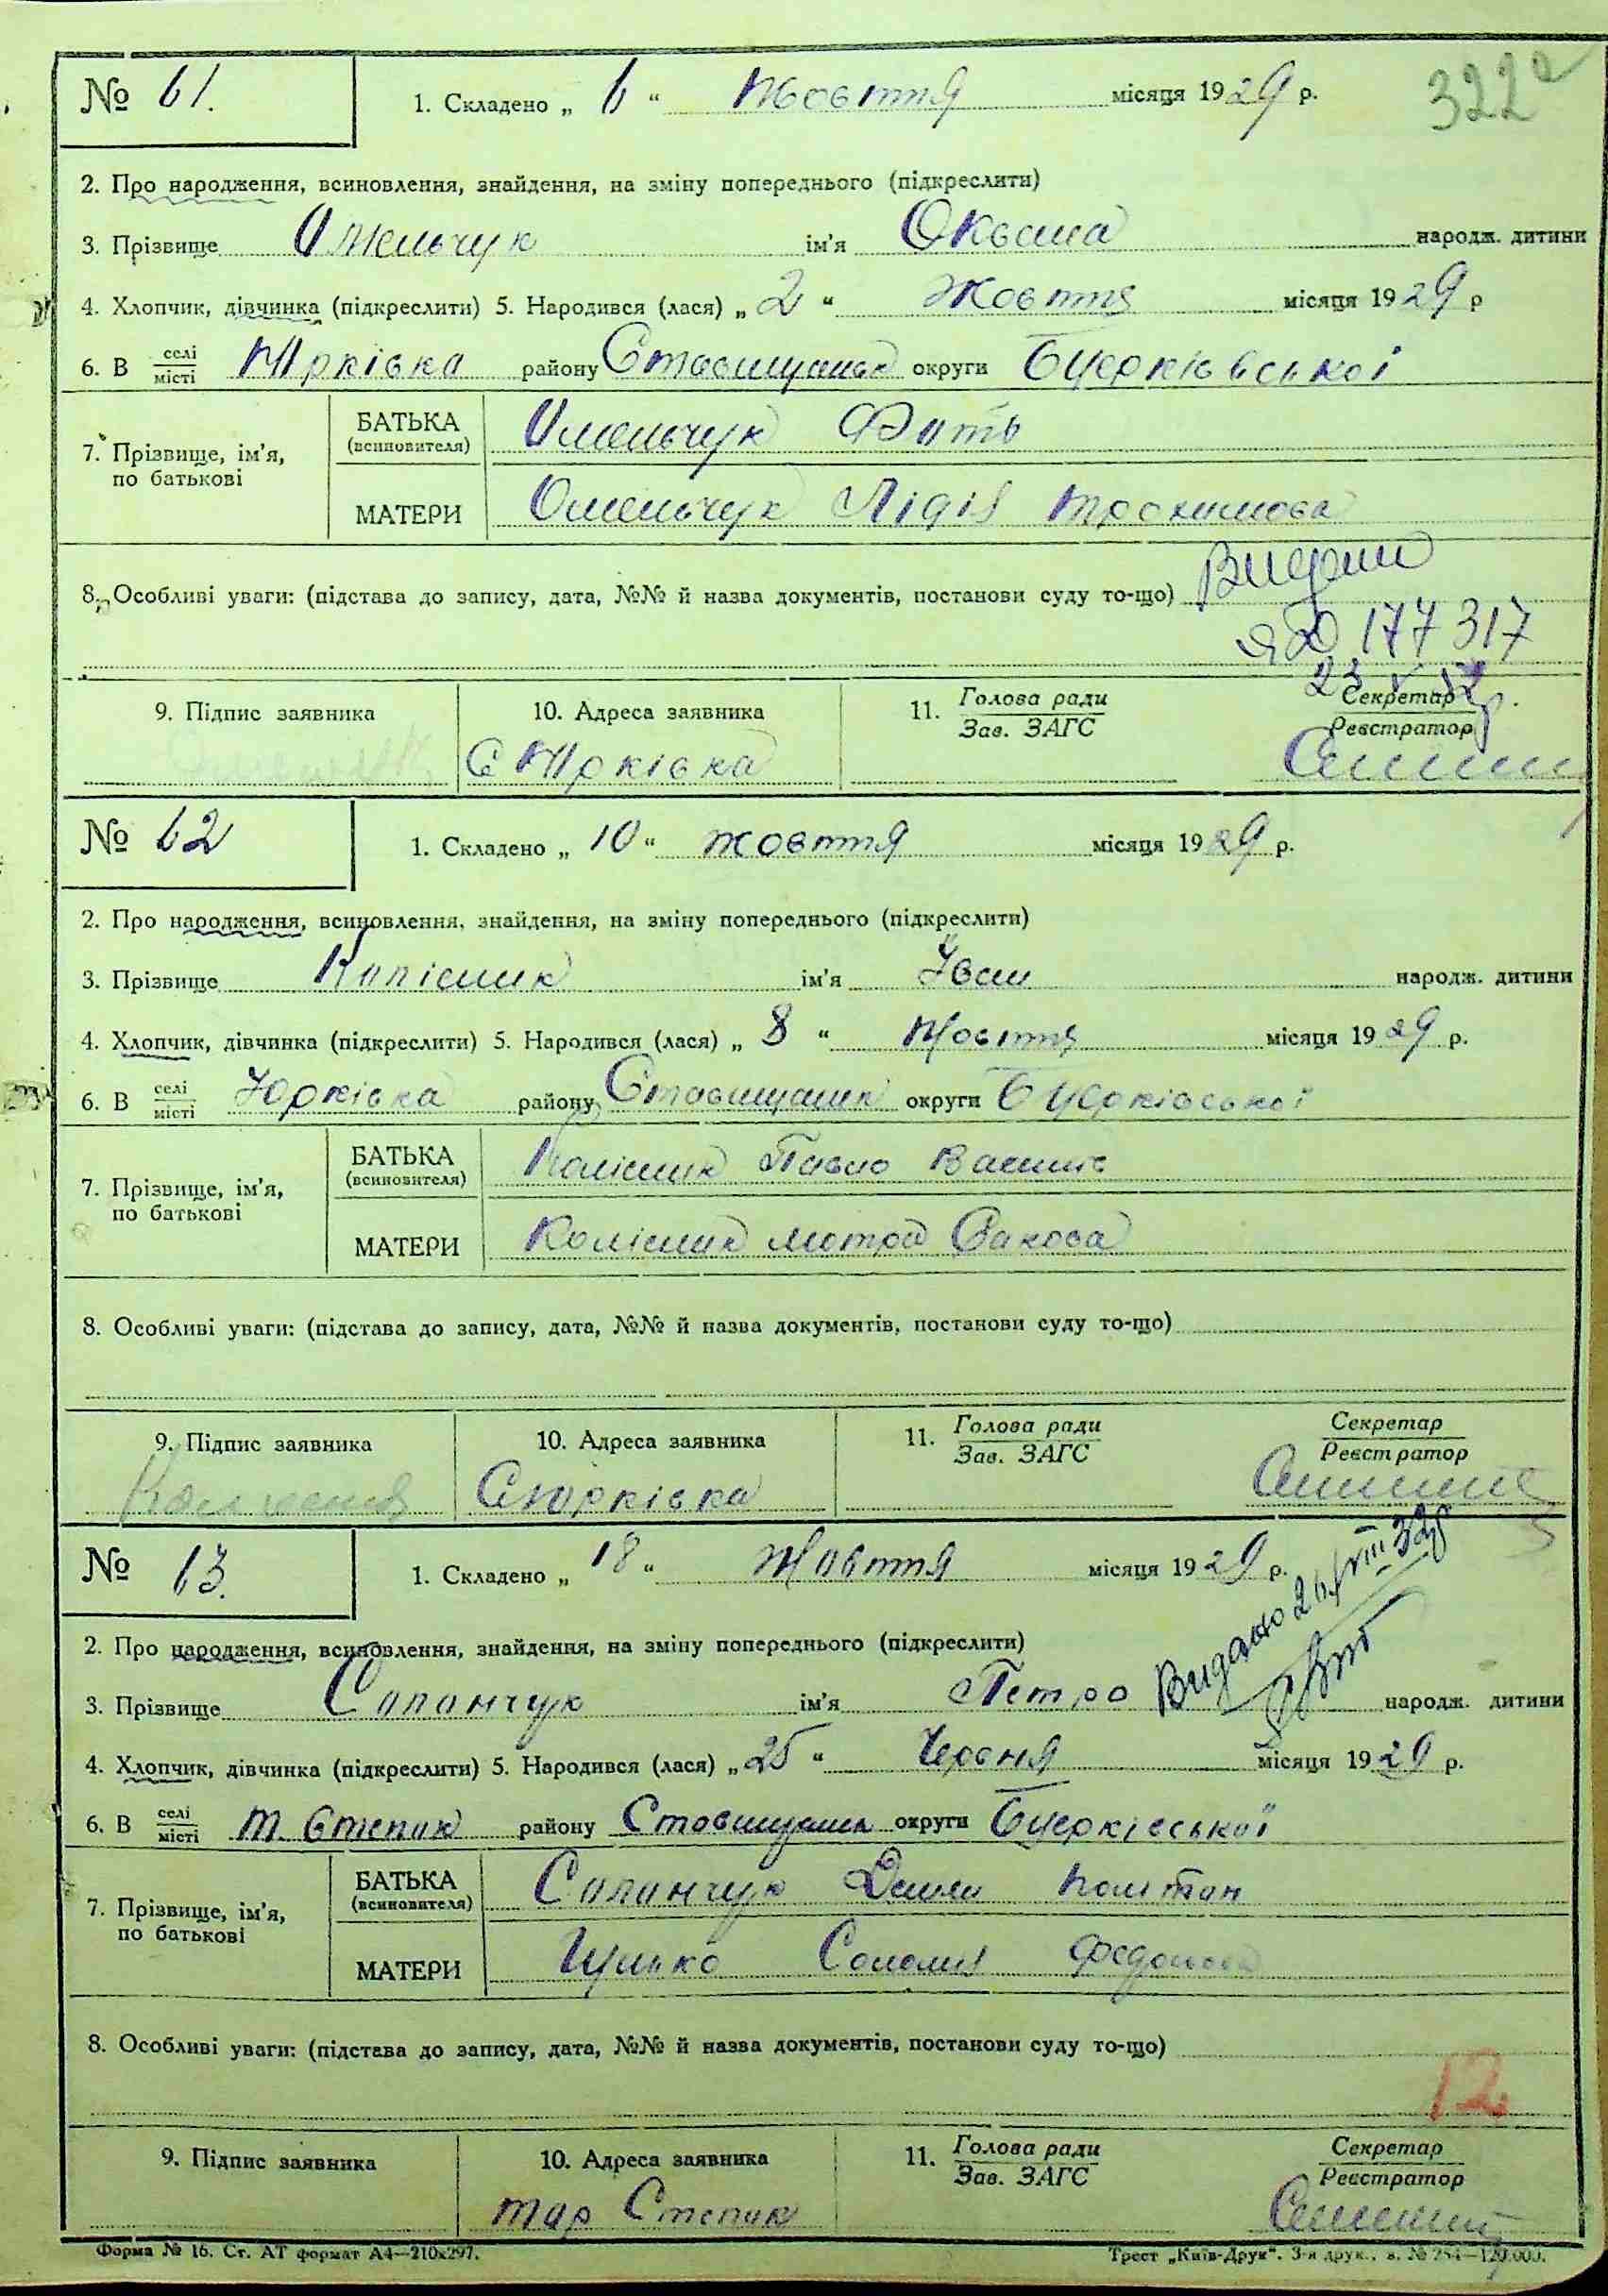 322
№ 61. 1. Складено „ 6 “ Жовтня місяця 1929 р.
2. Про народження, всиновлення, знайдення, на зміну попереднього (підкреслити)
3. Прізвище Омельчук ім’я Оксана народж. дитини
4. Хлопчик, дівчинка (підкреслити) 5. Народився (лася) „ 2 “ Жовтня місяця 1929 р
6. В селі/місті Юрківка району Ставищанськ округи Бцерківської
7. Прізвище, ім’я, по батькові
БАТЬКА (всиновителя) Омельчук
МАТЕРИ Омельчук Лідія Трохимова
8. Особливі уваги: (підстава до запису, дата, №№ й назва документів, постанови суду то-що)
177317
9. Підпис заявника 10. Адреса заявника 11. Голова ради / Зав. ЗАГС Секретар / Реєстратор
С Юрківка
№ 62 1. Складено „ 10 “ жовтня місяця 1929 р.
2. Про народження, всиновлення, знайдення, на зміну попереднього (підкреслити)
3. Прізвище Колісник ім’я Іван народж. дитини
4. Хлопчик, дівчинка (підкреслити) 5. Народився (лася) „ 8 “ Жовтня місяця 1929 р.
6. В селі/місті Юрківка району Ставищанськ округи Бцерківської
7. Прізвище, ім’я, по батькові
БАТЬКА (всиновителя) Колісник Павло
МАТЕРИ Колісник Мотря
8. Особливі уваги: (підстава до запису, дата, №№ й назва документів, постанови суду то-що)
9. Підпис заявника 10. Адреса заявника 11. Голова ради / Зав. ЗАГС Секретар / Реєстратор
С Юрківка
№ 63. 1. Складено „ 18 “ Жовтня місяця 1929 р.
2. Про народження, всиновлення, знайдення, на зміну попереднього (підкреслити)
Видано 26/VIII 32р
3. Прізвище ім’я Петро народж. дитини
4. Хлопчик, дівчинка (підкреслити) 5. Народився (лася) „ 25 “ Червня місяця 1929 р.
6. В селі/місті т. Степик району Ставищанськ округи Бцерківської
7. Прізвище, ім’я, по батькові
БАТЬКА (всиновителя)
МАТЕРИ Соломия
8. Особливі уваги: (підстава до запису, дата, №№ й назва документів, постанови суду то-що)
12
9. Підпис заявника 10. Адреса заявника 11. Голова ради / Зав. ЗАГС Секретар / Реєстратор
Степик
Форма № 16. Ст. АТ формат А4—210х297. Трест „Київ-Друк“. 3-я друк., з. № 254—120.000.